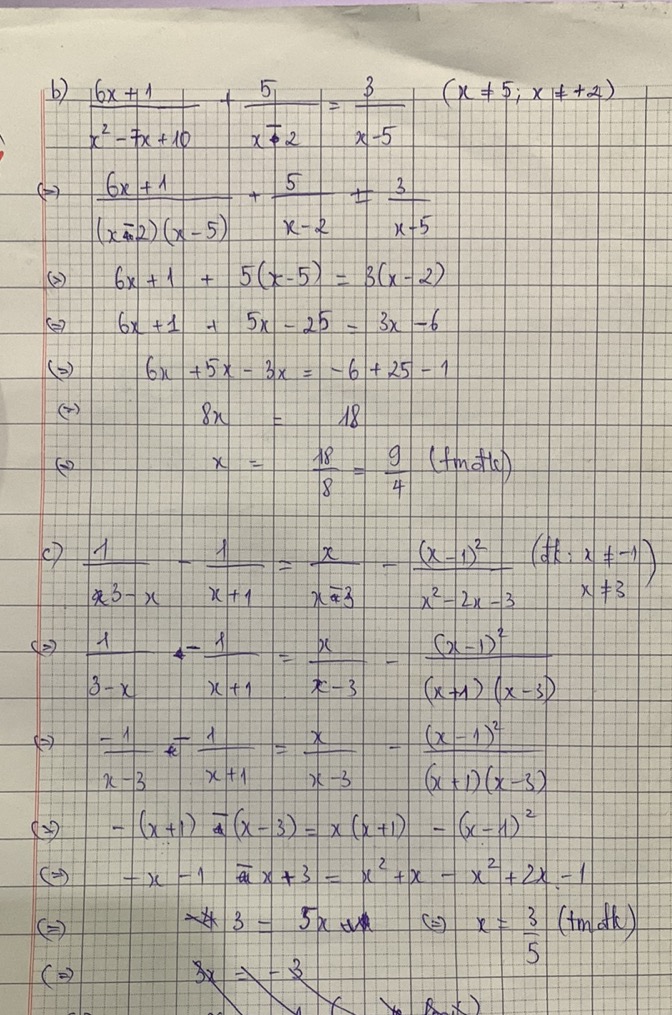 b) (6x+1)/(x² - 7x + 10) + 5/(x - 2) = 3/(x - 5) (x ≠ 5 ; x ≠ +2)
(=) (6x+1)/((x - 2)(x - 5)) + 5/(x - 2) = 3/(x - 5)
(=) 6x + 1 + 5(x - 5) = 3(x - 2)
(=) 6x + 1 + 5x - 25 = 3x - 6
(=) 6x + 5x - 3x = -6 + 25 - 1
(=) 8x = 18
(=) x = 18/8 = 9/4 (tmđk)
c) 1/(3 - x) - 1/(x + 1) = x/(x - 3) - (x - 1)²/(x² - 2x - 3) (đk : x ≠ -1 x ≠ 3)
(=) 1/(3 - x) - 1/(x + 1) = x/(x - 3) - (x - 1)²/((x+1)(x - 3))
(=) -1/(x - 3) - 1/(x + 1) = x/(x - 3) - (x - 1)²/((x+1)(x - 3))
(=) - (x+1) - (x - 3) = x(x+1) - (x - 1)²
(=) - x - 1 - x + 3 = x² + x - x² + 2x - 1
(=) 3 = 5x (=) x = 3/5 (tmđk)
(=) 3x = -3